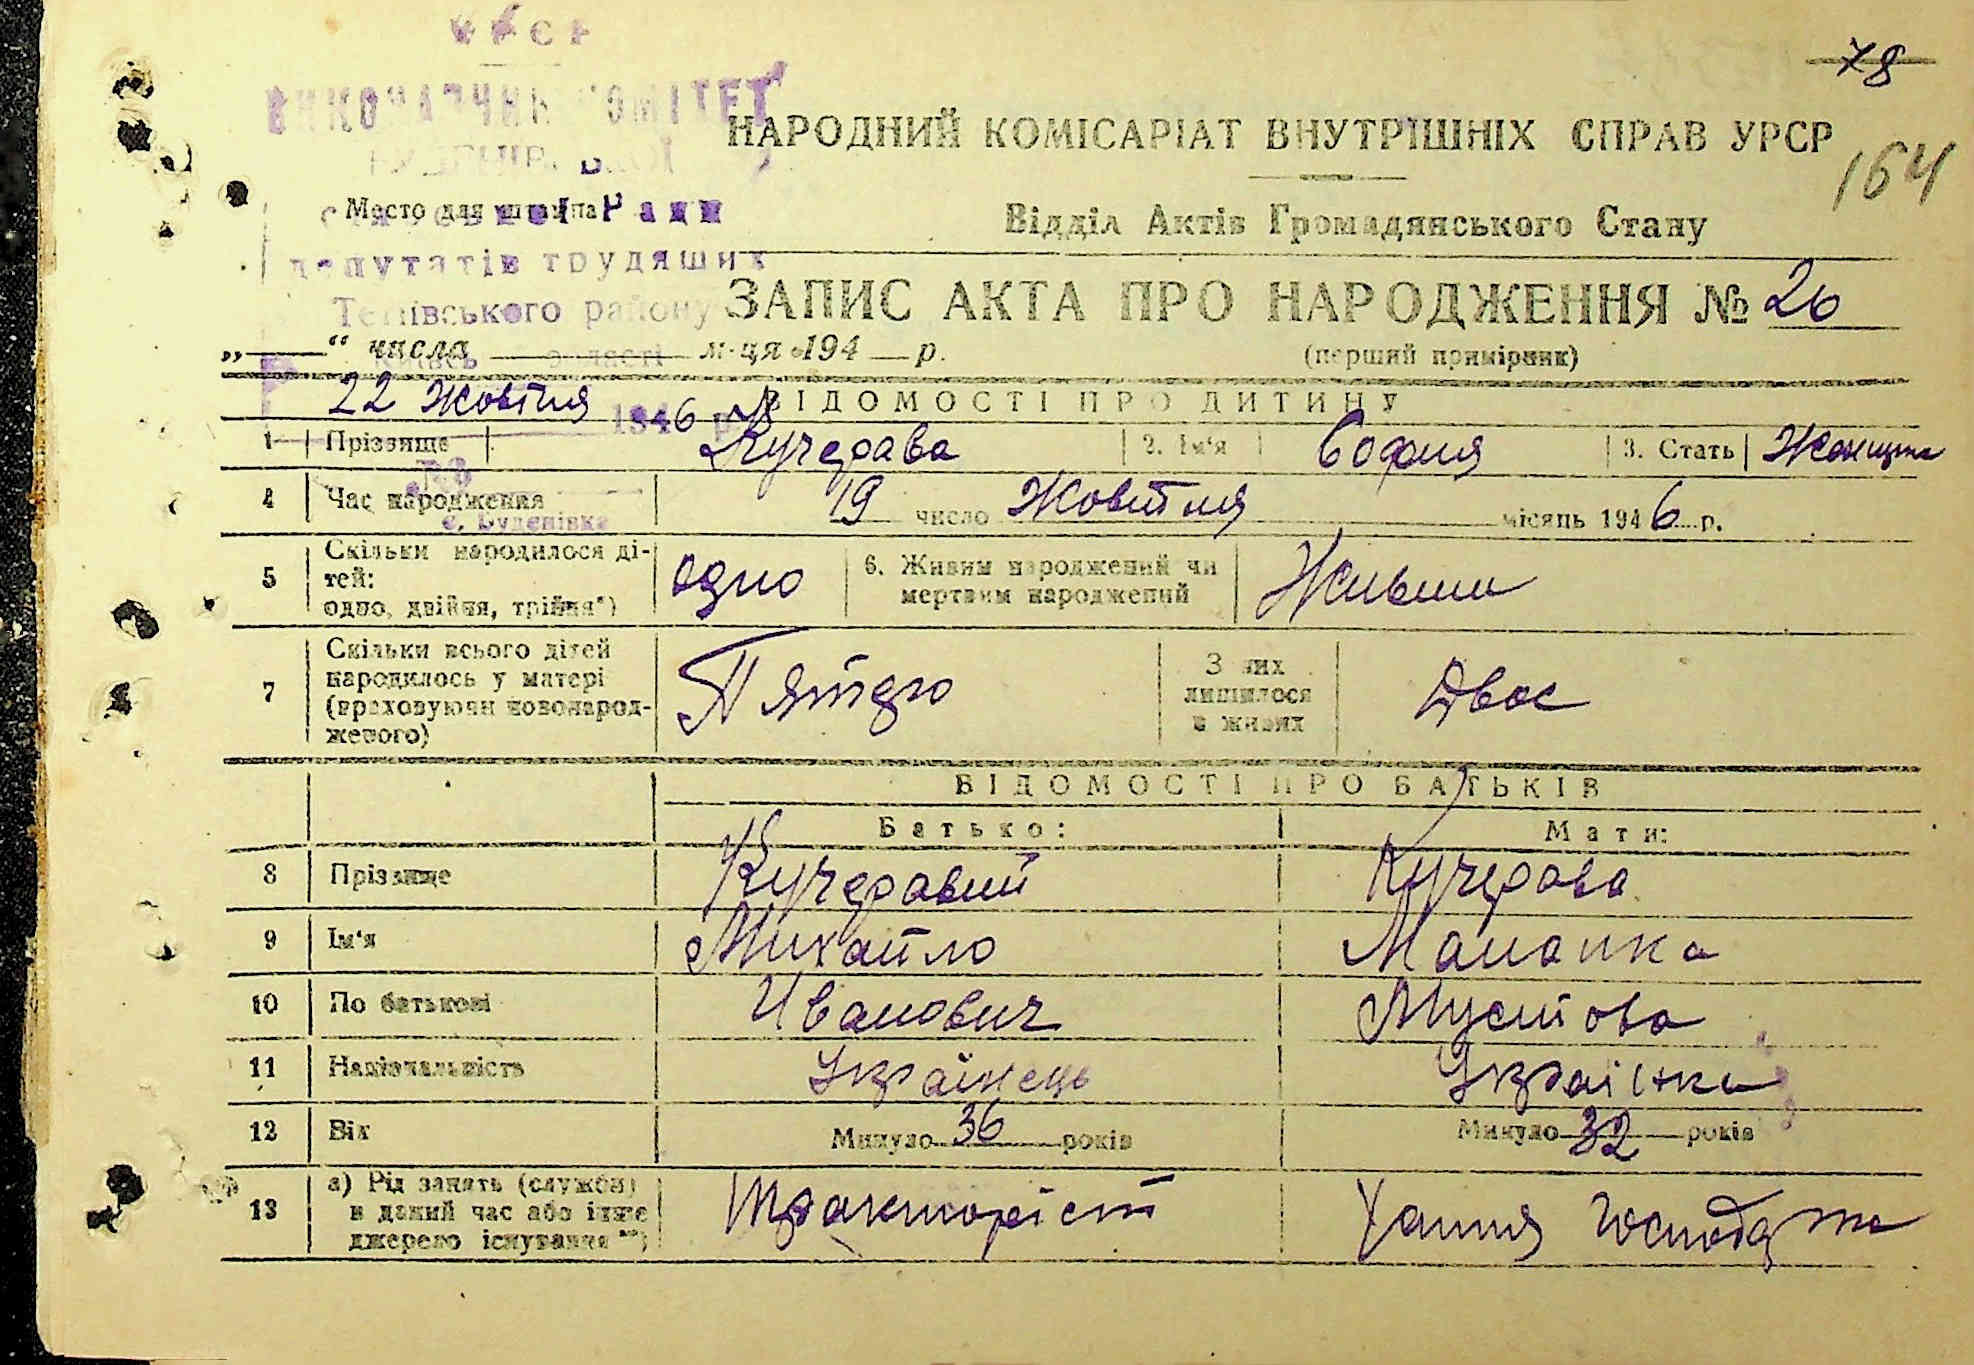 УРСР
78
ВИКОНАВЧИЙ КОМІТЕТ
НАРОДНИЙ КОМІСАРІАТ ВНУТРІШНІХ СПРАВ УРСР
164
Место для штампа
Ради
Відділ Актів Громадянського Стану
депутатів трудящих
Тетіївського району
ЗАПИС АКТА ПРО НАРОДЖЕННЯ № 20
„ “ числа м-ця 194 р.
області
(перший примірник)
22 Жовтня 1946 р.
ВІДОМОСТІ ПРО ДИТИНУ
1 Прізвище Кучерава 2. Ім‘я София 3. Стать Женщина
4 Час народження 19 число Жовтня місяць 1946 р.
с. Буденівка
5 Скільки народилося ді-
тей:
одно, двійня, трійня*) одно 6. Живим народжений чи
мертвим народжений Живим
7 Скільки всього дітей
народилось у матері
(враховуючи новонарод-
женого) Пятеро З них
лишилося
в живих Двоє
ВІДОМОСТІ ПРО БАТЬКІВ
Батько: Мати:
8 Прізвище Кучеравий Кучерава
9 Ім‘я Михайло Маланка
10 По батькові Иванович
11 Національність Українець Українка
12 Вік Минуло 36 років Минуло 32 років
13 а) Рід занять (служби)
в даний час або інше
джерело існування **) Тракторіст Хатня господарка